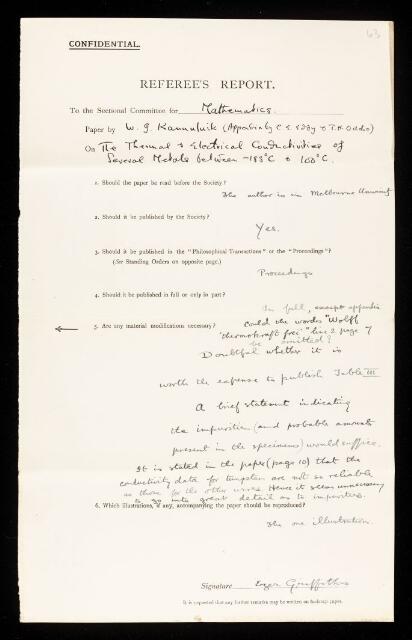 63
CONFIDENTIAL.
REFEREE'S REPORT.
To the Sectional Committee for Mathematics.
Paper by W. G. Kannuluik (Appendix by C. E. Eddy & T. H. Oddie)
On The Thermal & Electrical Conductivities of
Several Metals between -183°C & 100°C.
1. Should the paper be read before the Society?
The author is in Melbourne University
2. Should it be published by the Society?
Yes.
3. Should it be published in the "Philosophical Transactions" or the "Proceedings"?
(See Standing Orders on opposite page.)
Proceedings
4. Should it be published in full or only in part?
In full, except appendix
5. Are any material modifications necessary?
Could the words "Wolff
thermokraft frei" line 2 page 7
be omitted?
Doubtful whether it is
worth the expense to publish Table III
A brief statement indicating
the impurities (and probable amounts
present in the specimens) would suffice.
It is stated in the paper (page 10) that the
conductivity data for tungsten are not so reliable
as those for the other wires. Hence it seems unnecessary
to go into great detail as to impurities.
6. Which illustrations, if any, accompanying the paper should be reproduced?
The one illustration.
Signature Ezer Griffiths
It is requested that any further remarks may be written on foolscap paper.